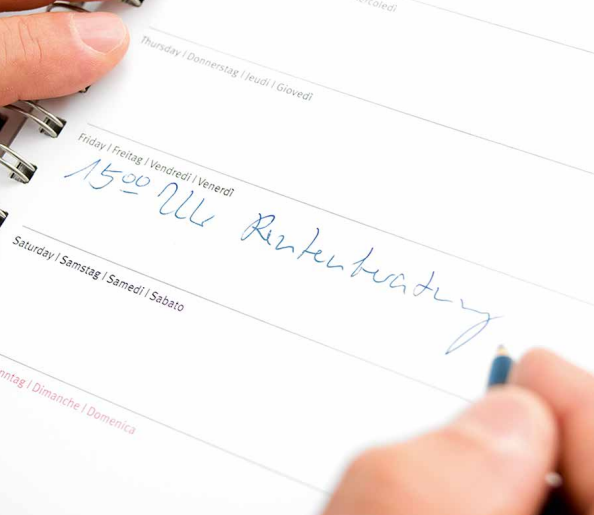 Thursday | Donnerstag | Jeudi | Giovedì
Friday | Freitag | Vendredi | Venerdì
15 00 Uhr Rentenberatung
Saturday | Samstag | Samedi | Sabato
Dimanche | Domenica